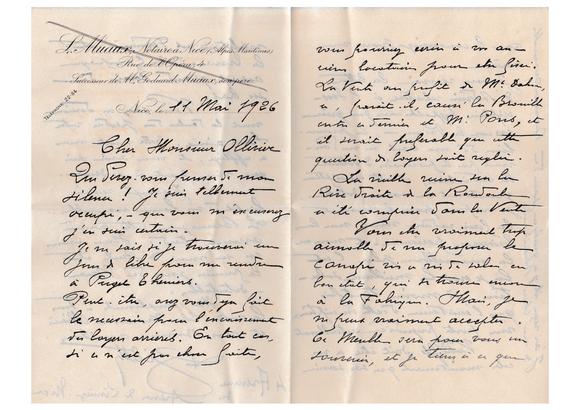 L. Muaux, Notaire à Nice, (Alpes Maritimes)
Rue de l'Opéra, 4
Successeur de M. Muaux, son père
Téléphone: 22-94
Nice, le 11 Mai 1926
Cher Monsieur Ollivier
Qu'allez-vous penser de mon
silence! Je suis tellement
occupé, - que vous m'excuserez
j'en suis certain.
Je ne sais si je trouverai un
jour de libre pour me rendre
à Puget Théniers.
Peut-être, avez vous déjà fait
le nécessaire pour l'encaissement
des loyers arriérés. En tout cas,
si ce n'est pas chose faite,
vous pourriez écrire à vos an-
ciens locataires pour être fixé.
La Vente au profit de Mr
a, paraît-il, causé la Brouille
entre ce dernier et Mr Pons, et
il serait préférable que cette
question de loyers soit réglée.
La vieille ruine sur la
Rive droite de la Roudoule
a été comprise dans la Vente
Vous êtes vraiment trop
aimable de me proposer le
canapé vis à vis de salon en
bon état, qui se trouve encore
à la Fabrique. Mais, je
ne peux vraiment accepter.
Ce Meuble sera pour vous un
souvenir, et je tiens à ce que